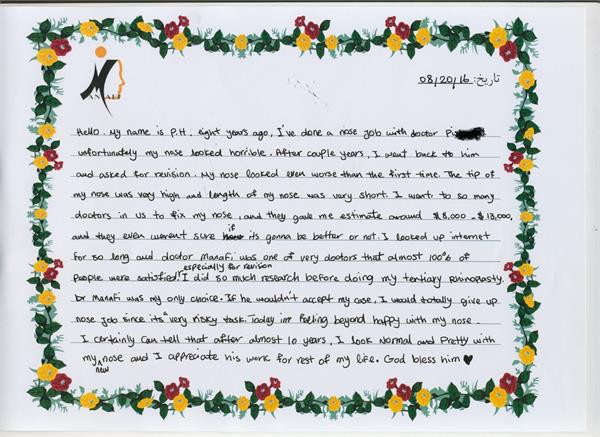 MANAFI
تاریخ: 08/20/16
Hello. My name is P.H. eight years ago, I've done a nose job with doctor
unfortunately my nose looked horrible. After couple years, I went back to him
and asked for revision. My nose looked even worse than the first time. The tip of
my nose was very high and length of my nose was very short. I went to so many
doctors in us to fix my nose, and they gave me estimate around $8,000 - $13,000,
and they even weren't sure if its gonna be better or not. I looked up internet
for so long and doctor Manafi was one of very doctors that almost 100% of
people were satisfied! especially for revision I did so much research before doing my tertiary Rhinoplasty.
Dr Manafi was my only choice. If he wouldn't accept my case, I would totally give up
nose job since its a very risky task. Today im feeling beyond happy with my nose
I certainly can tell that after almost 10 years, I look normal and Pretty with
my new nose and I appreciate his work for rest of my life. God bless him ♥